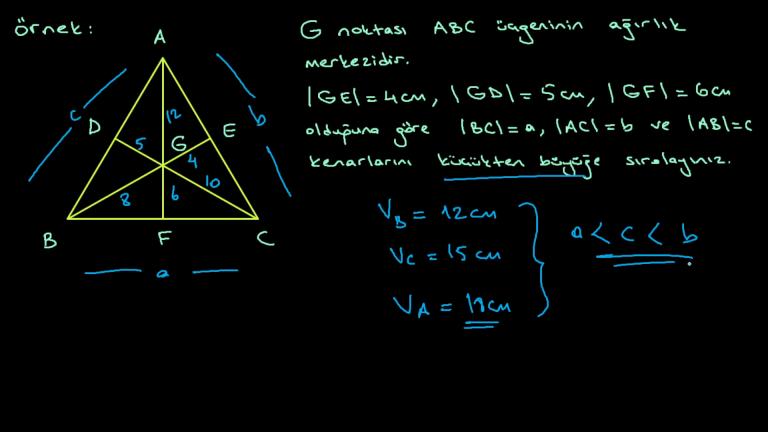 Örnek:
G noktası ABC üçgeninin ağırlık
merkezidir.
|GE|=4cm, |GD|=5cm, |GF|=6cm
olduğuna göre |BC|=a, |AC|=b ve |AB|=c
kenarlarını küçükten büyüğe sıralayınız.
A
c
b
12
D
5
G
E
4
8
6
10
B
F
C
a
V_B = 12cm
V_C = 15cm
V_A = 18cm
a < c < b